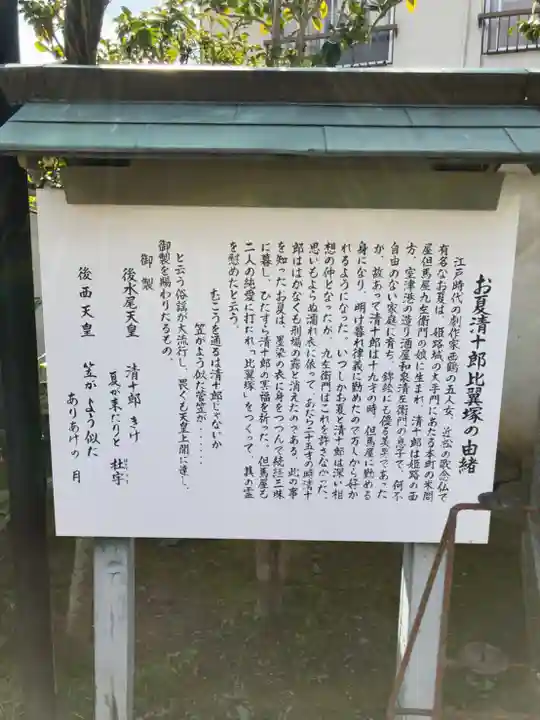 お夏清十郎比翼塚の由緒
江戸時代の劇作家西鶴の五人女、近松の歌念仏で
有名なお夏は、姫路城の大手門にあたる本町の米問
屋但馬屋九左衛門の娘に生まれ、清十郎は姫路の西
方、室津港の造り酒屋和泉清左衛門の息子で、何不
自由のない家庭に育ち、錦絵にも優る美男であった
が、故あって清十郎は十九才の時、但馬屋に勤める
身になり、明け暮れ律義に勤めたので万人から好か
れるようになった。いつしかお夏と清十郎は深い相
想の仲となったが、九左衛門はこれを許さなかった。
思いもよらぬ濡れ衣に依って、あたら二十五才の時清十
郎ははかなくも刑場の露と消えたのである。此の事
を知ったお夏は、墨染の衣に身をつつんで読経三昧
に暮し、ひたすら清十郎の冥福を祈った。但馬屋も
二人の純愛に打たれ「比翼塚」をつくって、其の霊
を慰めたと云う。
むこうを通るは清十郎じゃないか
笠がよう似た菅笠が・・・・・・
と云う俗謡が大流行し、畏くも天皇上聞に達し、
御製を賜わりたるもの。
御製
後水尾天皇 清十郎 きけ
夏が来たりと 杜宇
後西天皇 笠が よう似た
ありあけの 月